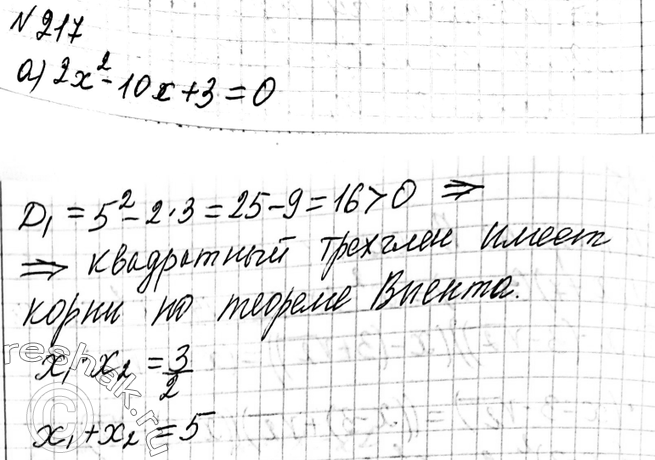 №217
а) 2x² - 10x + 3 = 0
D₁ = 5² - 2·3 = 25 - 9 = 16 > 0 ⇒
⇒ квадратный трехчлен имеет
корни по теореме Виета.
x₁·x₂ = 3/2
x₁ + x₂ = 5
reshak.ru
©